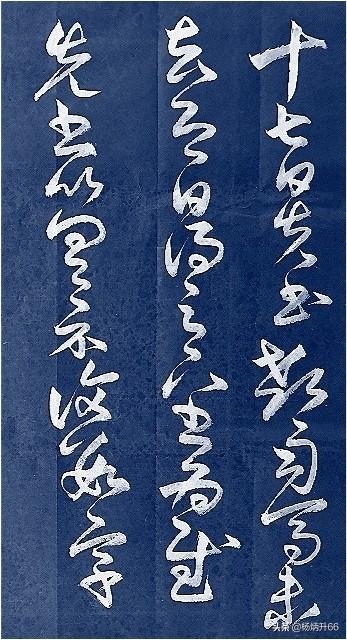 十七日先書郗司馬未
去即日得足下書為慰
先書以具示復數字
头条 @杨炳升66